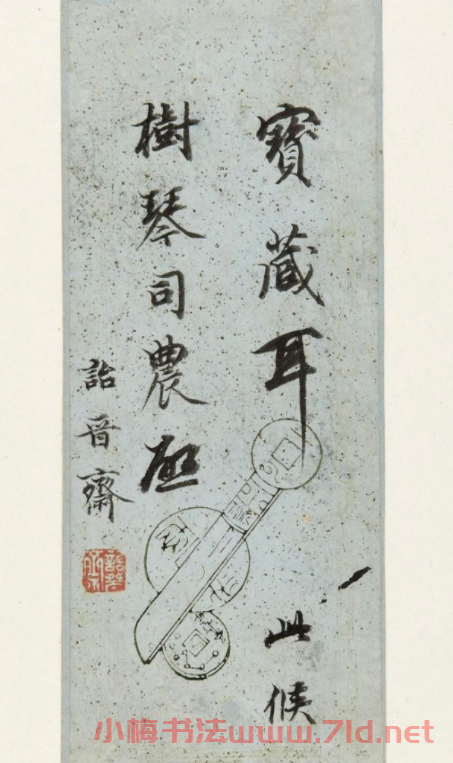 寶藏耳 此候
樹琴司農
詒晋齋
小梅书法www.7ld.net